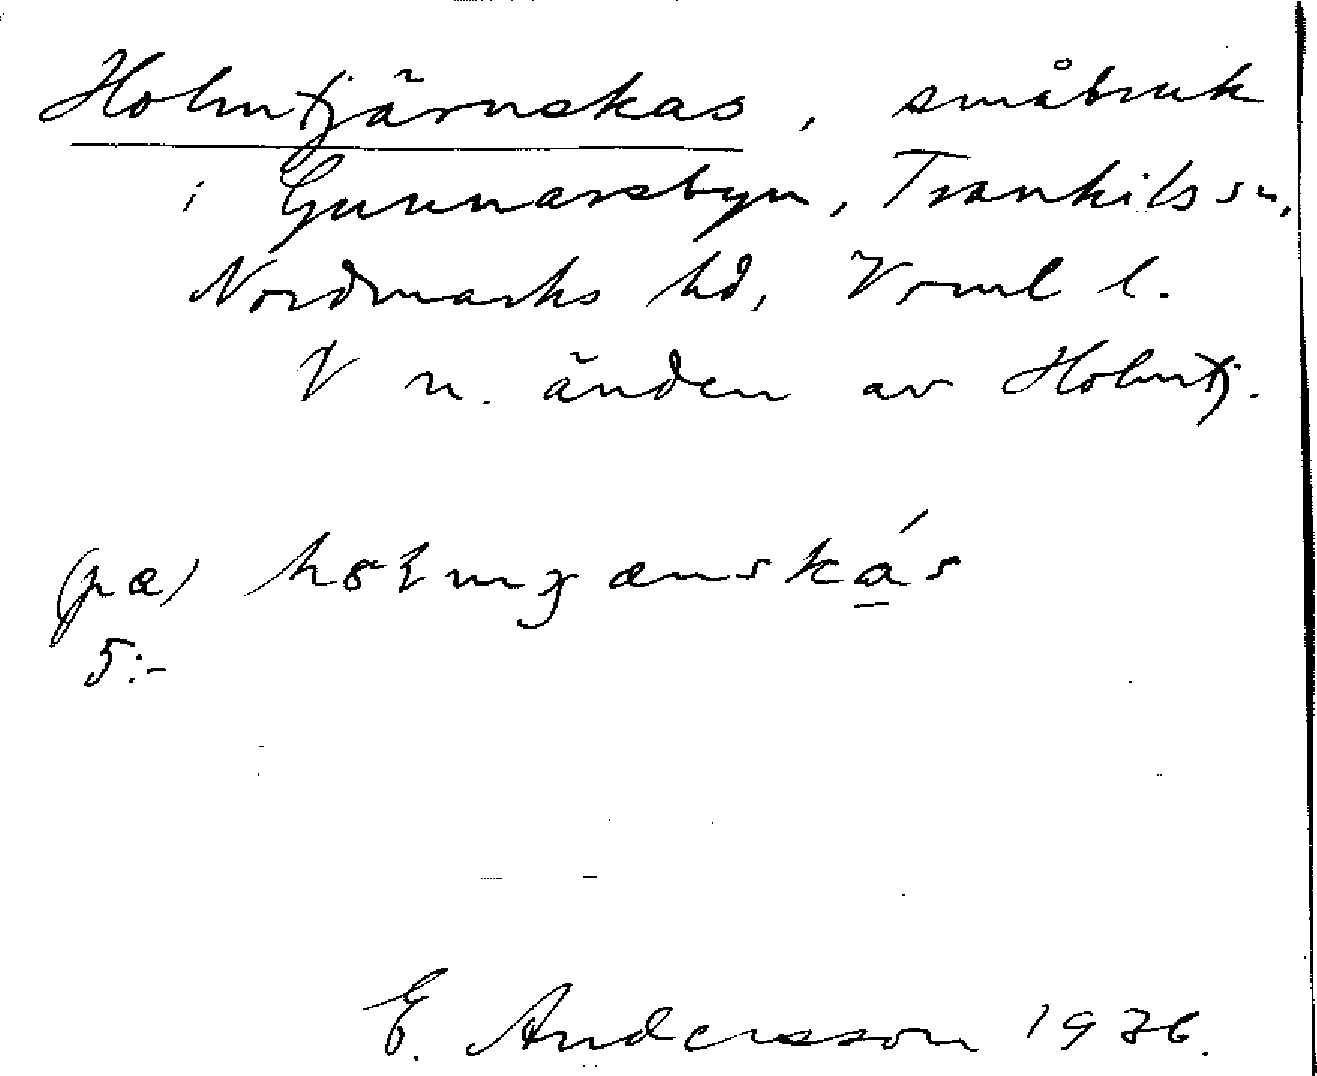 Holmtjärnskas, småbruk
i Gunnarsbyn, Trankils sn,
Nordmarks hd, Vrml l.
V n. änden av Holmtj.
(pa)
5:-
E. Andersson 1936.